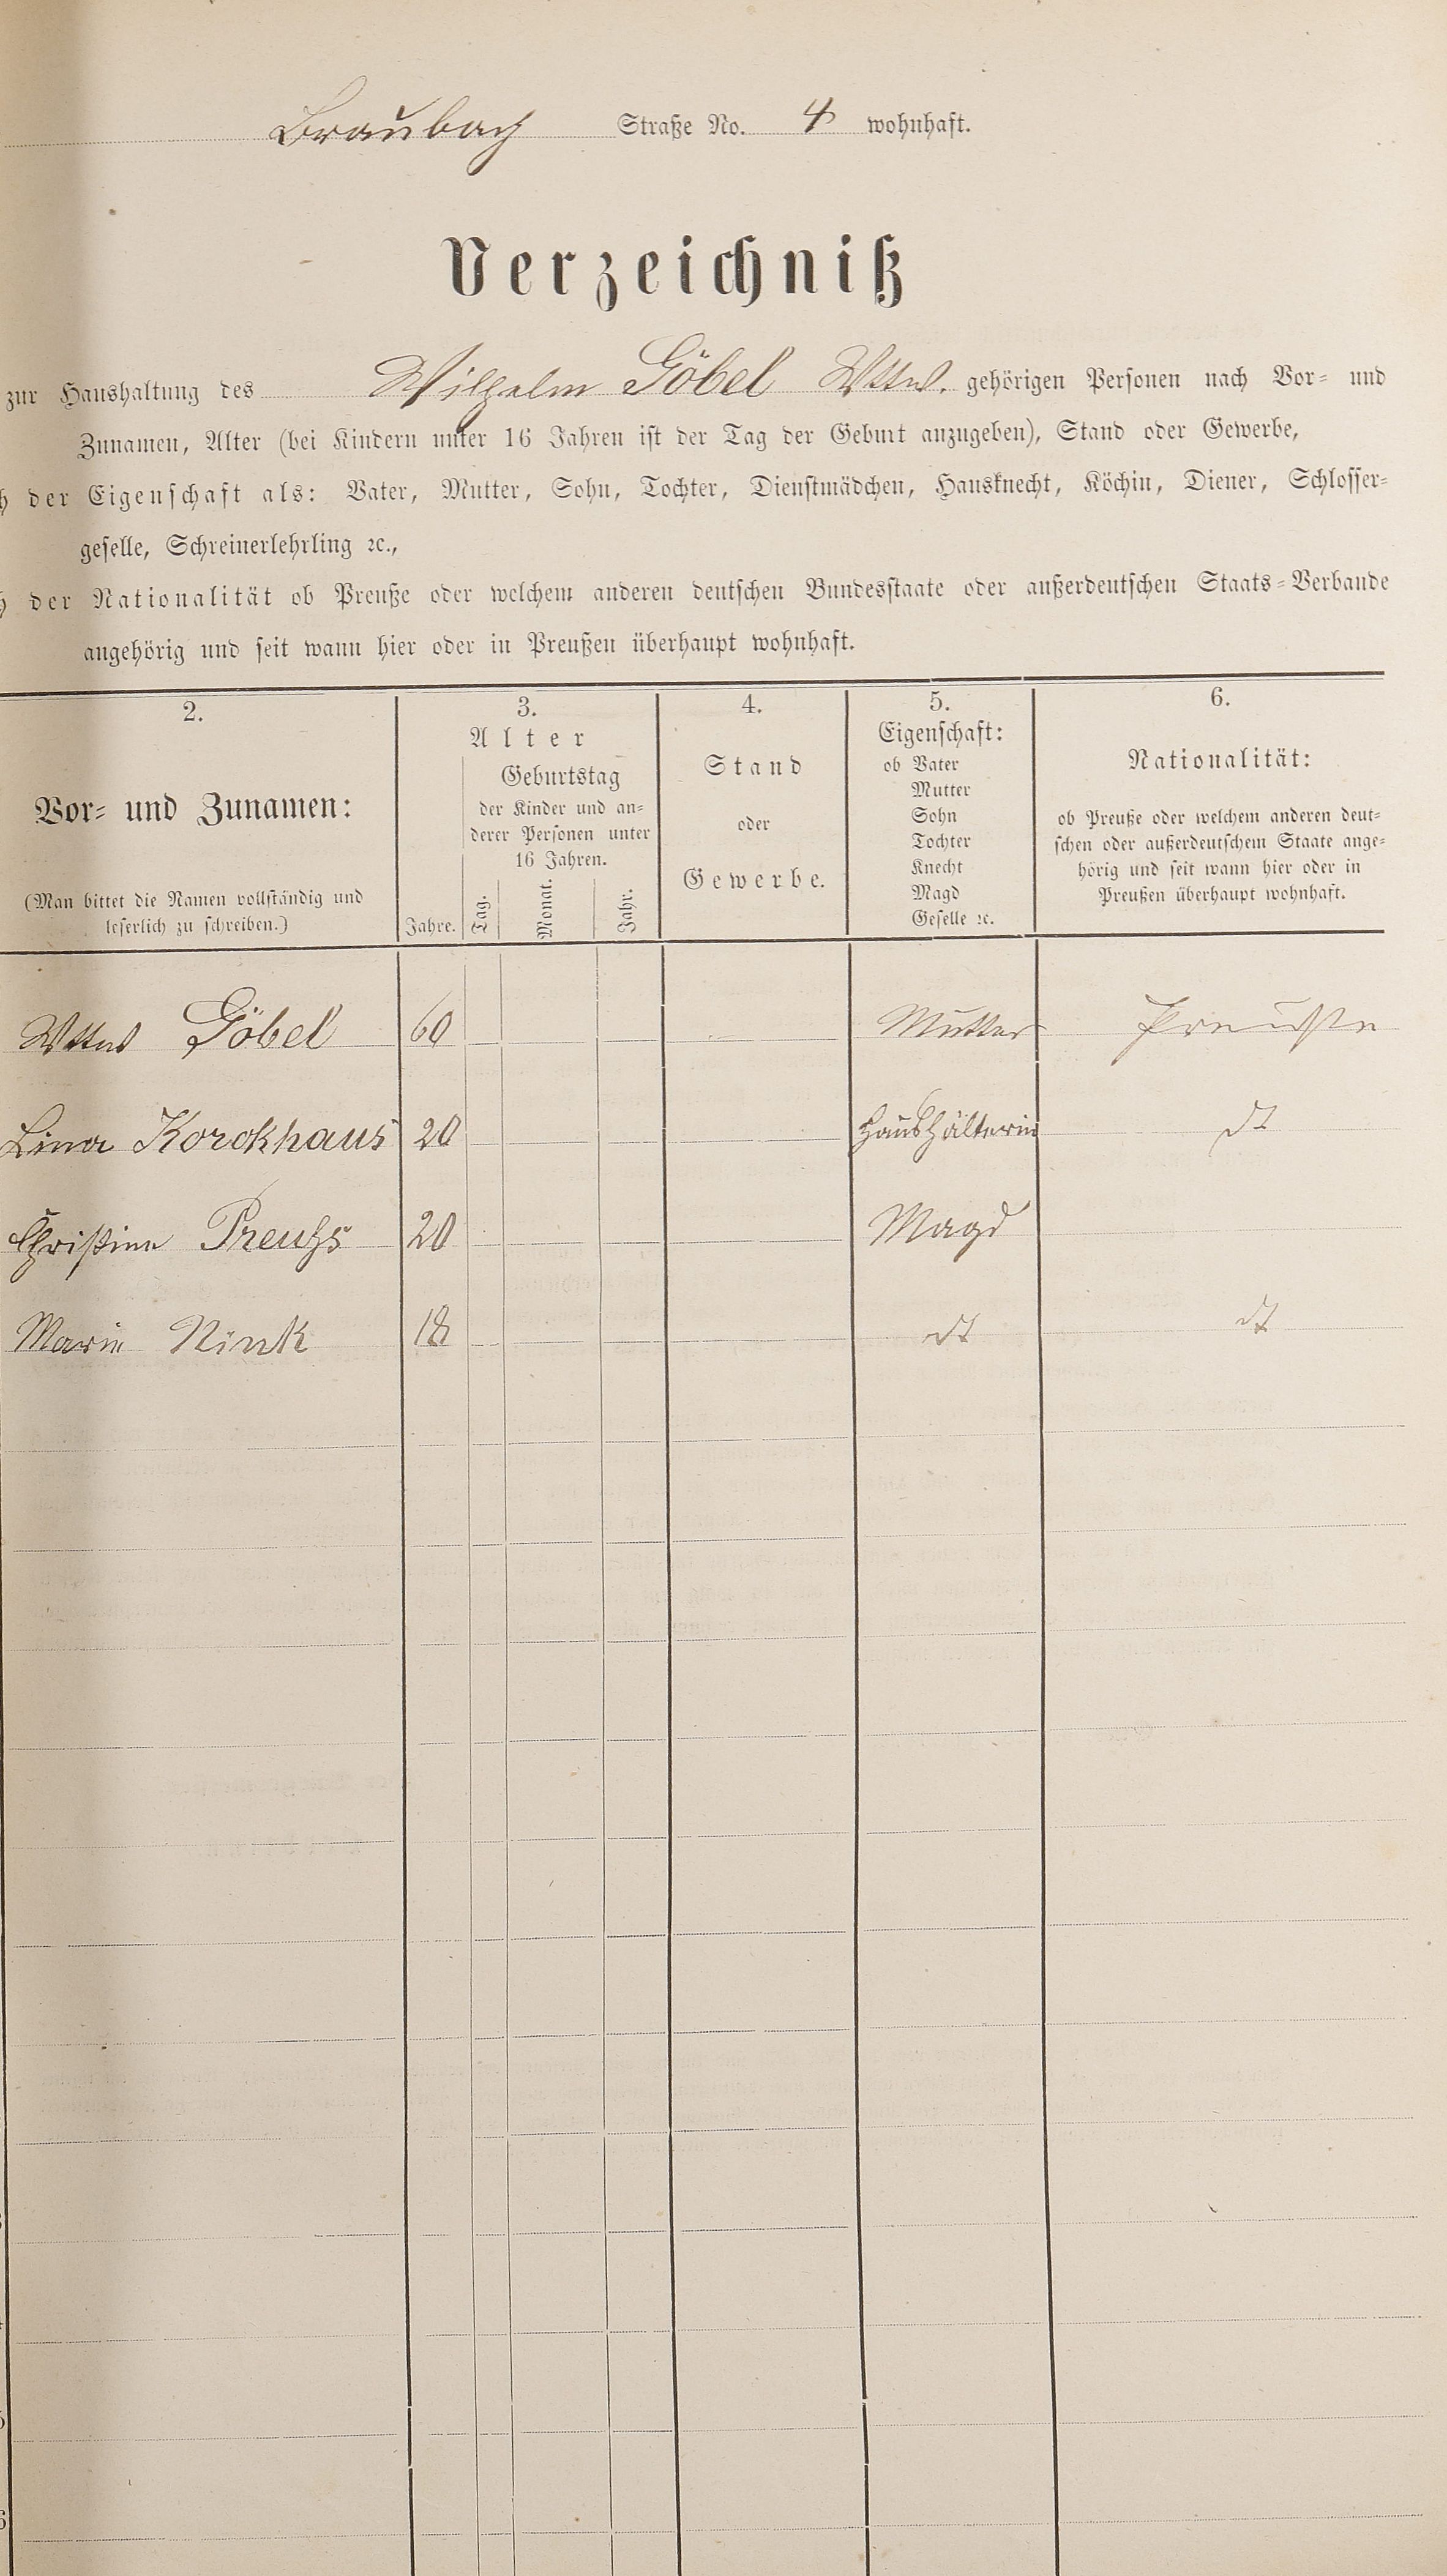 Braubach Straße No. 4 wohnhaft.
Verzeichniß
zur Haushaltung des Wilhelm Göbel Wttw. gehörigen Personen nach Vor- und
Zunamen, Alter (bei Kindern unter 16 Jahren ist der Tag der Geburt anzugeben), Stand oder Gewerbe,
h der Eigenschaft als: Vater, Mutter, Sohn, Tochter, Dienstmädchen, Hausknecht, Köchin, Diener, Schlosser-
geselle, Schreinerlehrling ꝛc.,
h der Nationalität ob Preuße oder welchem anderen deutschen Bundesstaate oder außerdeutschen Staats-Verbande
angehörig und seit wann hier oder in Preußen überhaupt wohnhaft.
2.
Vor- und Zunamen:
(Man bittet die Namen vollständig und
leserlich zu schreiben.)
3.
Alter
Geburtstag
der Kinder und an-
derer Personen unter
16 Jahren.
Jahre. Tag. Monat. Jahr.
4.
Stand
oder
Gewerbe.
5.
Eigenschaft:
ob Vater
Mutter
Sohn
Tochter
Knecht
Magd
Geselle ꝛc.
6.
Nationalität:
ob Preuße oder welchem anderen deut-
schen oder außerdeutschem Staate ange-
hörig und seit wann hier oder in
Preußen überhaupt wohnhaft.
Wttw Göbel 60 Mutter Preußin
Lina Korckhaus 20 Haushälterin dt
Christine Preuhs 20 Magd
Marie Nink 18 dt dt